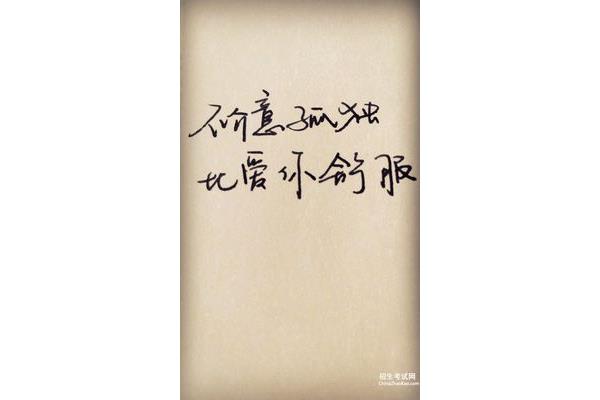 不介意孤独
比爱你舒服
招生考试网
ChinaZhaoKao.com